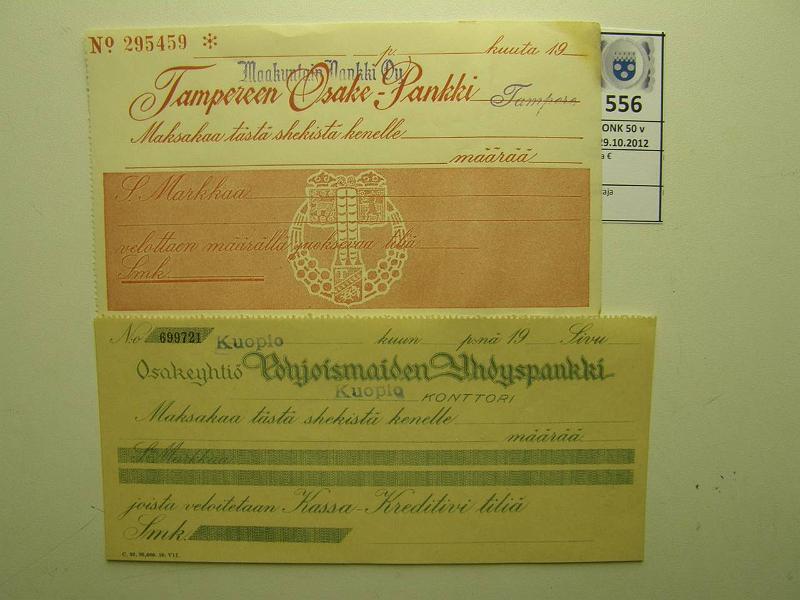 No 295459 *
p. kuuta 19
Maakuntain Pankki Oy
Tampereen Osake-Pankki Tampere
Maksakaa tästä shekistä kenelle
määrää
S. Markkaa
velottaen määrällä juoksevaa tiliä
Smk.
556
ONK 50 v
29.10.2012
a €
aja
No 699721 Kuopio kuun p:nä 19 Sivu
Osakeyhtiö Pohjoismaiden Yhdyspankki
Kuopio KONTTORI
Maksakaa tästä shekistä kenelle
määrää
S. Markkaa
joista veloitetaan Kassa-Kreditivi tiliä
Smk.